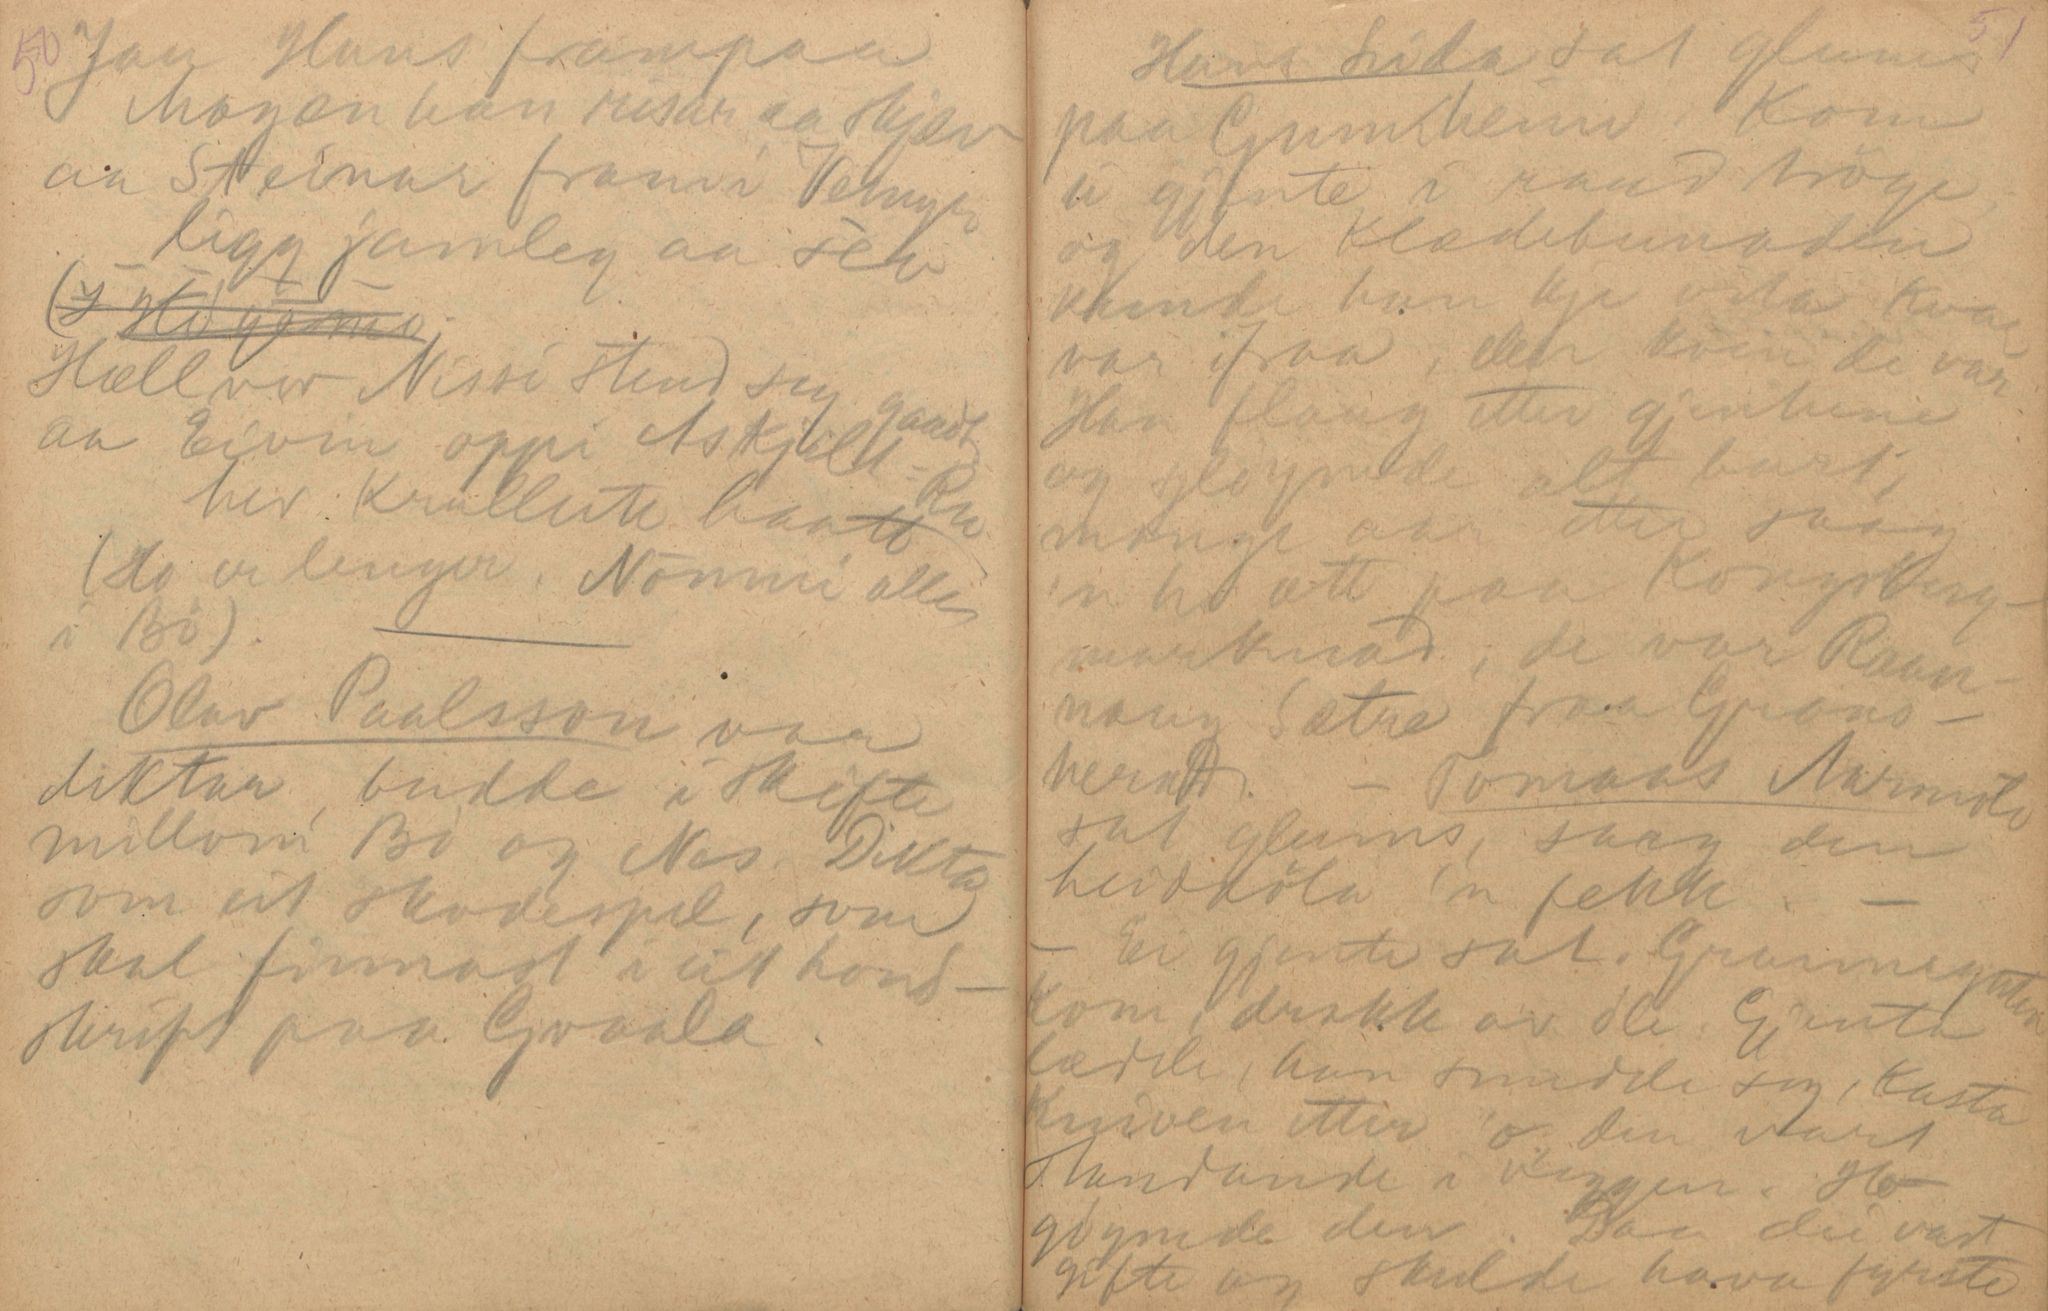 50
Jau Hans frampaa
Mogæn han risar aa skjæv
aa Steinar frami
ligg jamleg aa sev
Hællvor Nissi stend seg gaadt
aa Eivin oppi Askjell-
Ru
hev krullute haatt
(Ho er lenger. Nommi alle
i Bø).
Olav Paalsson var
diktar, budde i skifte
millom Bø og Nes. Dikta
som eit skodespel, som
skal finnast i eit hond-
skrift paa Gvaala.
51
Hans Lida sat glums
paa Grimheim. Kom
ei gjente i raud trøye,
og den klædebunaden
kunde han kje vita kvar
var ifraa, den koin de var
Han flaug etter gjentene
og gløymde alt burt,
mange aar etter saag
'n ho att paa Kongsberg-
marknad, de var Raan-
naug Sætre fraa Grans-
herad. - Tomaas Aarmoto
sat glums, saag den
heidkøla 'n fekk. -
- Ei gjente sat. Grannegjuten
kom, drakk av øle. Gjenta
lædde, han snudde seg, kasta
kniven etter 'o, den vart
standande i veggen. Ho
gøymde den. Daa dei vart
gifte og skulde hava fyrste